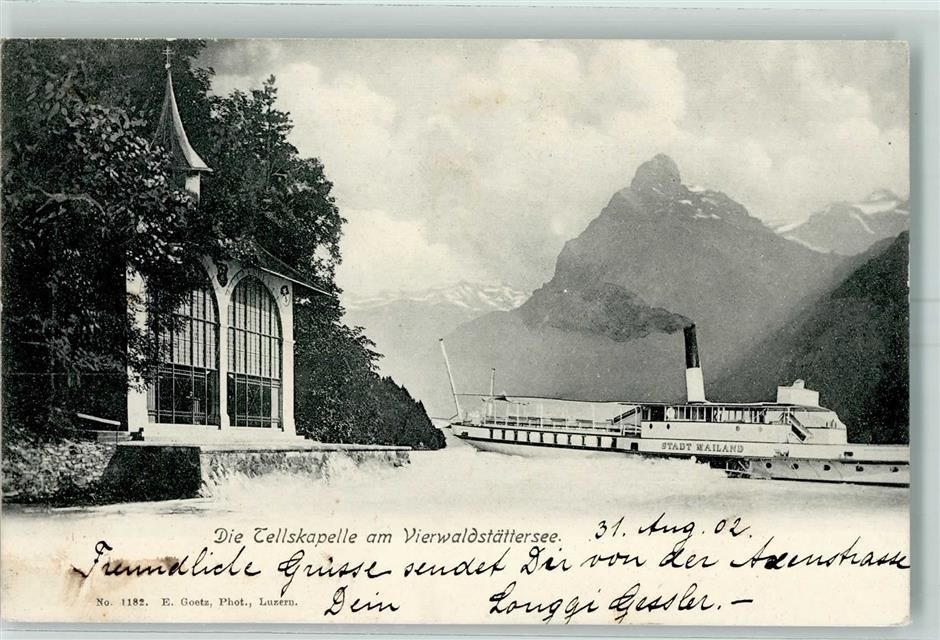 STADT MAILAND
Die Tellskapelle am Vierwaldstättersee.
31. Aug. 02.
Freundliche Grüsse sendet Dir von der Axenstrasse
No. 1182. E. Goetz, Phot., Luzern.
Dein Longgi Gessler. –